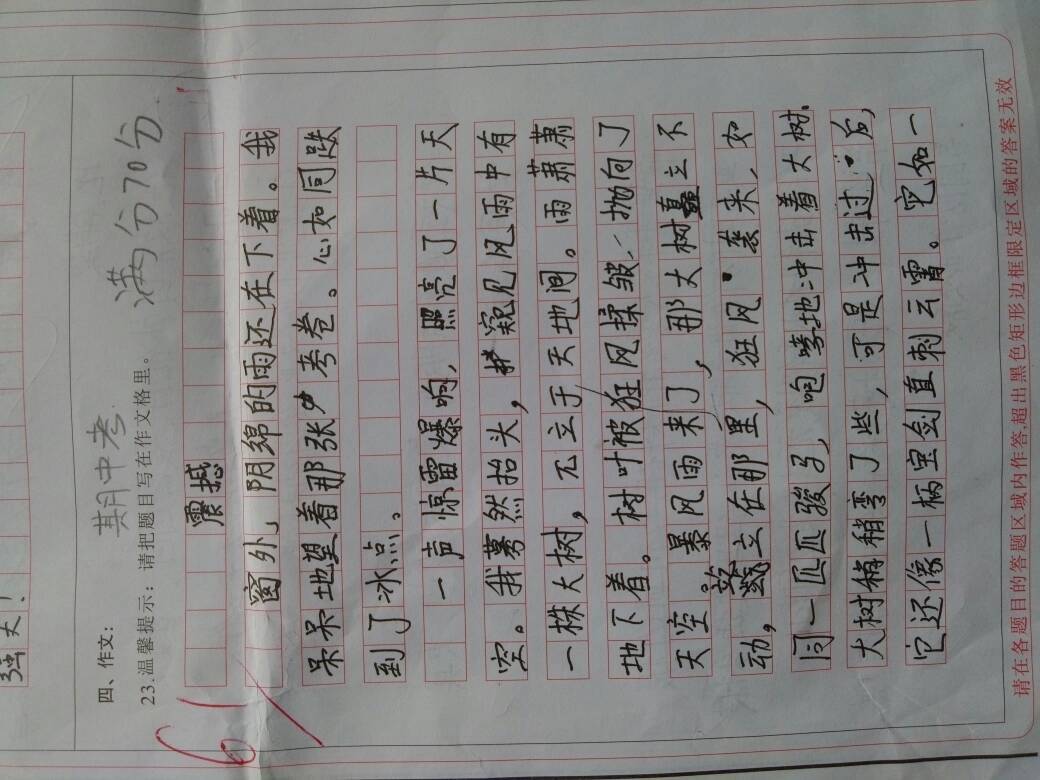 强大！
四、作文：
期中考
23.温馨提示：请把题目写在作文格里。
满分70分
61
震撼
窗外，阴绵的雨还在下着。我
呆呆地望着那张考卷。心如同跌
到了冰点。
一声惊雷爆响，照亮了一片天
空。我蓦然抬头，窥见风雨中有
一株大树，兀立于天地间。雨萧萧
地下着。树叶被狂风揉皱、抛向了
天空。暴风雨来了，那大树矗立不
动，立在那里，狂风袭来、如
同一匹匹骏马，咆哮地冲击着大树.
大树稍稍弯了些，可是冲击过后，
它还像一柄宝剑直刺云霄。它如一
请在各题目的答题区域内作答,超出黑色矩形边框限定区域的答案无效